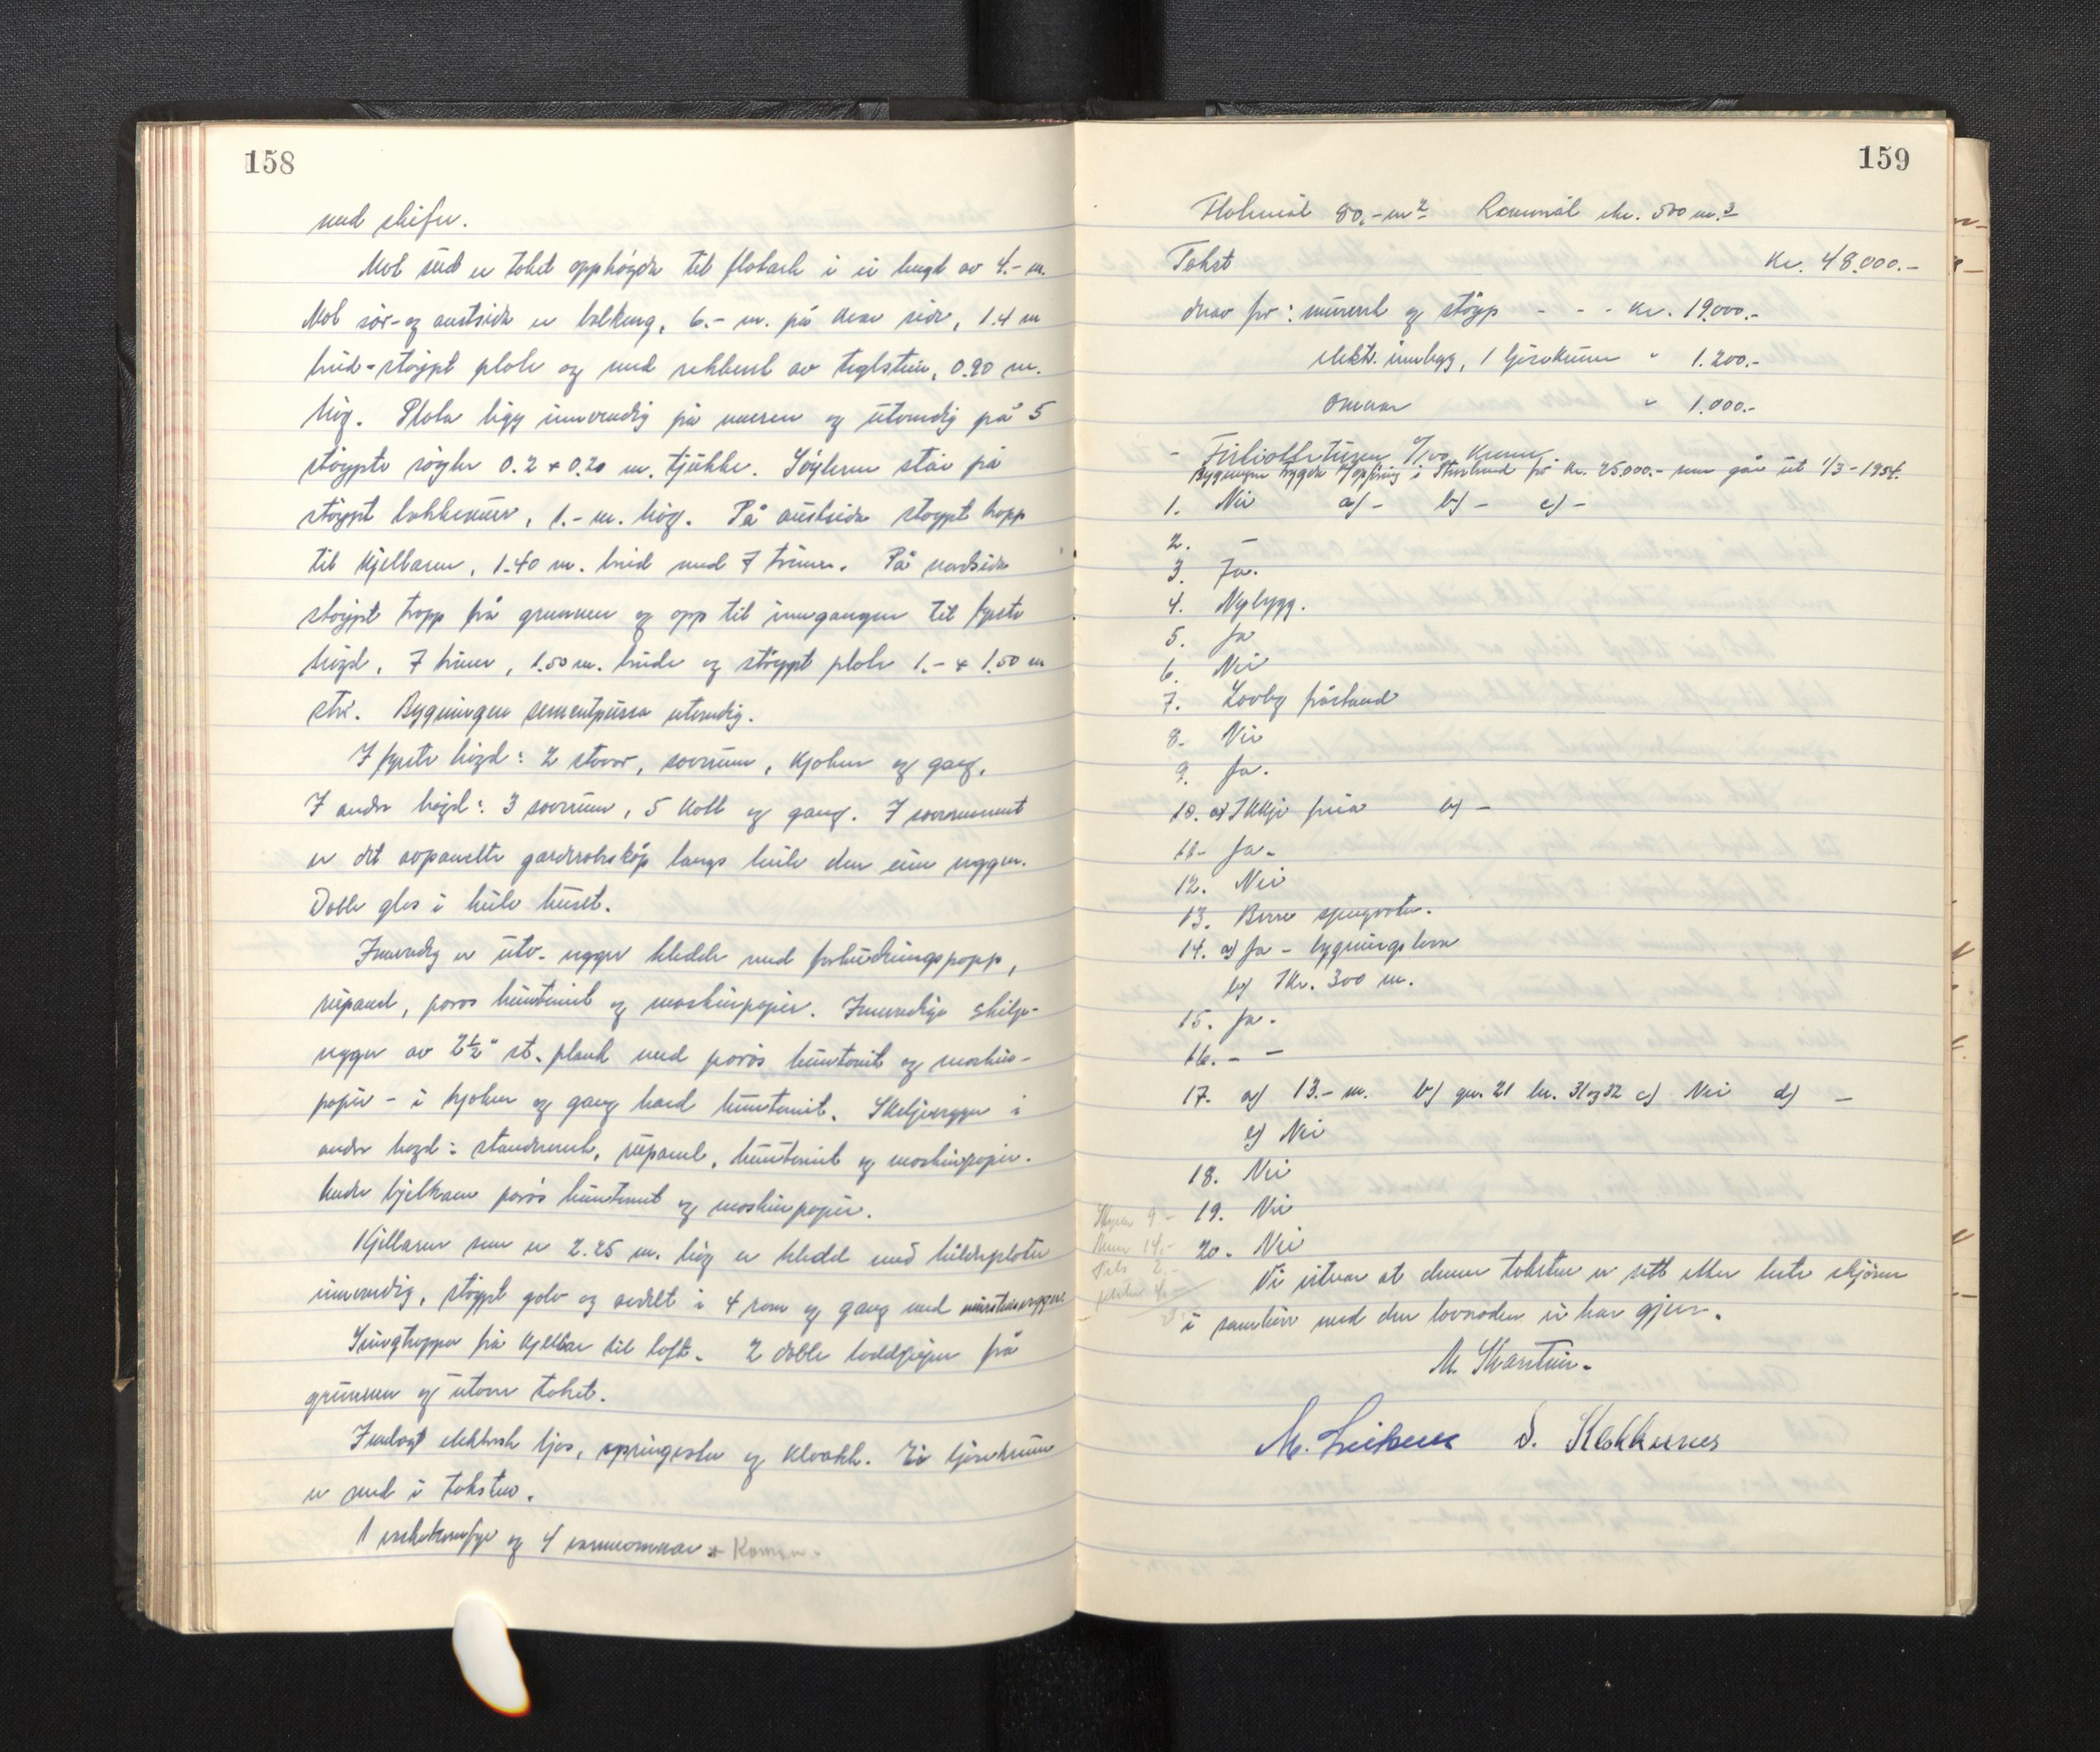 158
med skifer.
Mot aust er taket opphögda til flatark i ei lengd av 4.- m.
Mot sör- og austsida er balkong, 6.- m. på kvar side, 1.4 m
breid - stöypt plate og med rekkverk av teglstein, 0.90 m.
hög. Plata ligg innvendig på muren og utvendig på 5
stöypte söyler 0.2 x 0.20 m. tjukke. Söylene står på
stöypt bakkemur, 1.- m. hög. På austsida stöypt tropp
til kjellaren, 1.40 m. breid med 7 trinn. På nordsida
stöypt tropp frå grunnen og opp til inngangen til fyrste
högd, 7 trinn, 1.50 m. breide og stöypt plate 1.- x 1.50 m
stor. Bygningen sementpussa utvendig.
I fyrste högd: 2 stover, soverum, kjöken og gang.
I andre högd: 3 soverum, 5 kott og gang. I soverummet
er det avpanelte garderobeskåp langs heile den eine veggen.
Doble glas i heile huset.
Innvendig er utv. vegger kledde med forhudningspapp,
rupanel, porös huntonit og maskinpapir. Innvendige skilje-
vegger av 2½" st. plank med porös huntonit og maskin-
papir - i kjöken og gang hard huntonit. Skiljevegger i
andre högd: standverk, rupanel, huntonit og maskinpapir.
Under bjelkane porös huntonit og maskinpapir.
Kjellaren som er 2.25 m. hög er kledd med kuldeplater
innvendig, stöypt golv og avdelt i 4 rom og gang med murstensvegger.
Svingtropper frå kjellar til loft. 2 doble loddpiper frå
grunnen og utover taket.
Innlagt elektrisk ljos, springvatn og kloakk. Ei ljosekrune
er med i taksten.
1 vaskekomfyr og 4 varmeomnar + Komfyr.
159
Flatemål 80.- m² Rommål ikr. 500 m.³
Takst Kr. 48.000.-
derav for: murverk og stöyp - - - kr. 19000.-
elektr. innlegg, 1 ljosekrune " 1.200.-
omnar " 1.000.-
1. Nei a) - b) - c) -
2. -
3. Ja.
4. Nybygg.
5. Ja
6. Nei
7. Lovleg påstand
8. Nei
9. Ja.
10. a) Ikkje pria b) -
11. Ja.
12. Nei
13. Berre springvatn.
14. a) Ja - bygningslova
b) Ikr. 300 m.
15. Ja.
16. - -
17. a) 13.- m. b) gnr. 21 bnr. 31 og 32 c) Nei d) -
e) Nei
18. Nei
19. Nei
20. Nei
Vi vitnar at denne taksten er sett etter beste skjön
i samhöve med den lovnaden vi har gjeve.
M. Skarstein.
S. Kokkersnes